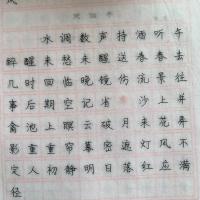 天仙子
水调数声持酒听午
醉醒来愁未醒送春春去
几时回临晚镜伤流景往
事后期空记省 沙上并
禽池上暝云破月来花弄
影重重帘幕密遮灯风不
定人初静明日落红应满
径